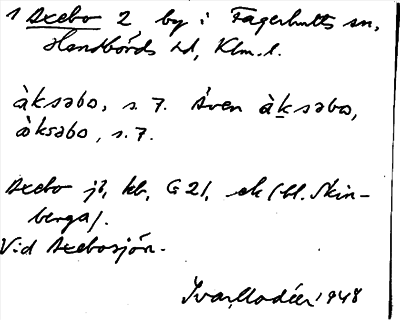 1 Axebo 2 by i Fagerhults sn,
Handbörds hd, Klm. l.
àksəbo, s. 7. Även àksəbo,
àksəbo, s. 7.
Axebo jb, kb, G 21, ek (bl. Skin-
berga).
Vid Axebosjön.
Ivar Modéer 1948